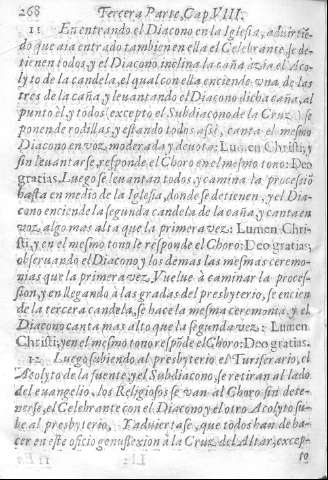 268 Tercera Parte, Cap. VIII.
11 En entrando el Diacono en la Iglesia, aduirtiē
do que aia entrado tambien en ella el Celebrante, se de-
tienen todos, y el Diacono inclina la caña àzia el Aco-
lyto de la candela, el qual con ella enciende vna de las
tres de la caña, y leuantando el Diacono dicha caña, al
punto èl, y todos (excepto el Subdiacono de la Cruz) se
ponen de rodillas, y estando todos assi, canta el mesmo
Diacono en voz moderada y devota: Lumen Christi; y
sin leuantarse, responde el Choro en el mesmo tono: Deo
gratias. Luego se leuantan todos, y camina la processiō
hasta en medio de la Iglesia, donde se detienen, y el Dia-
cono enciende la segunda candela de la caña, y canta en
voz algo mas alta que la primera vez: Lumen Chris-
ti, y en el mesmo tono le responde el Choro: Deo gratias,
obseruando el Diacono y los demas las mesmas ceremo-
nias que la primera vez. Vuelue à caminar la proces-
sion, y en llegando à las gradas del presbyterio, se encien
de la tercera candela, se hace la mesma ceremonia, y el
Diacono canta mas alto que la segunda vez: Lumen
Christi; y en el mesmo tono respōde el Choro: Deo gratias.
12 Luego subiendo al presbyterio el Turiferario, el
Acolyto de la fuente, y el Subdiacono, se retiran al lado
del euangelio, los Religiosos se van al Choro sin dete-
nerse, el Celebrante con el Diacono y el otro Acolyto su-
be al presbyterio. Y aduiertase, que todos han de ha-
cer en este oficio genuflexion à la Cruz del Altar, excep-
to